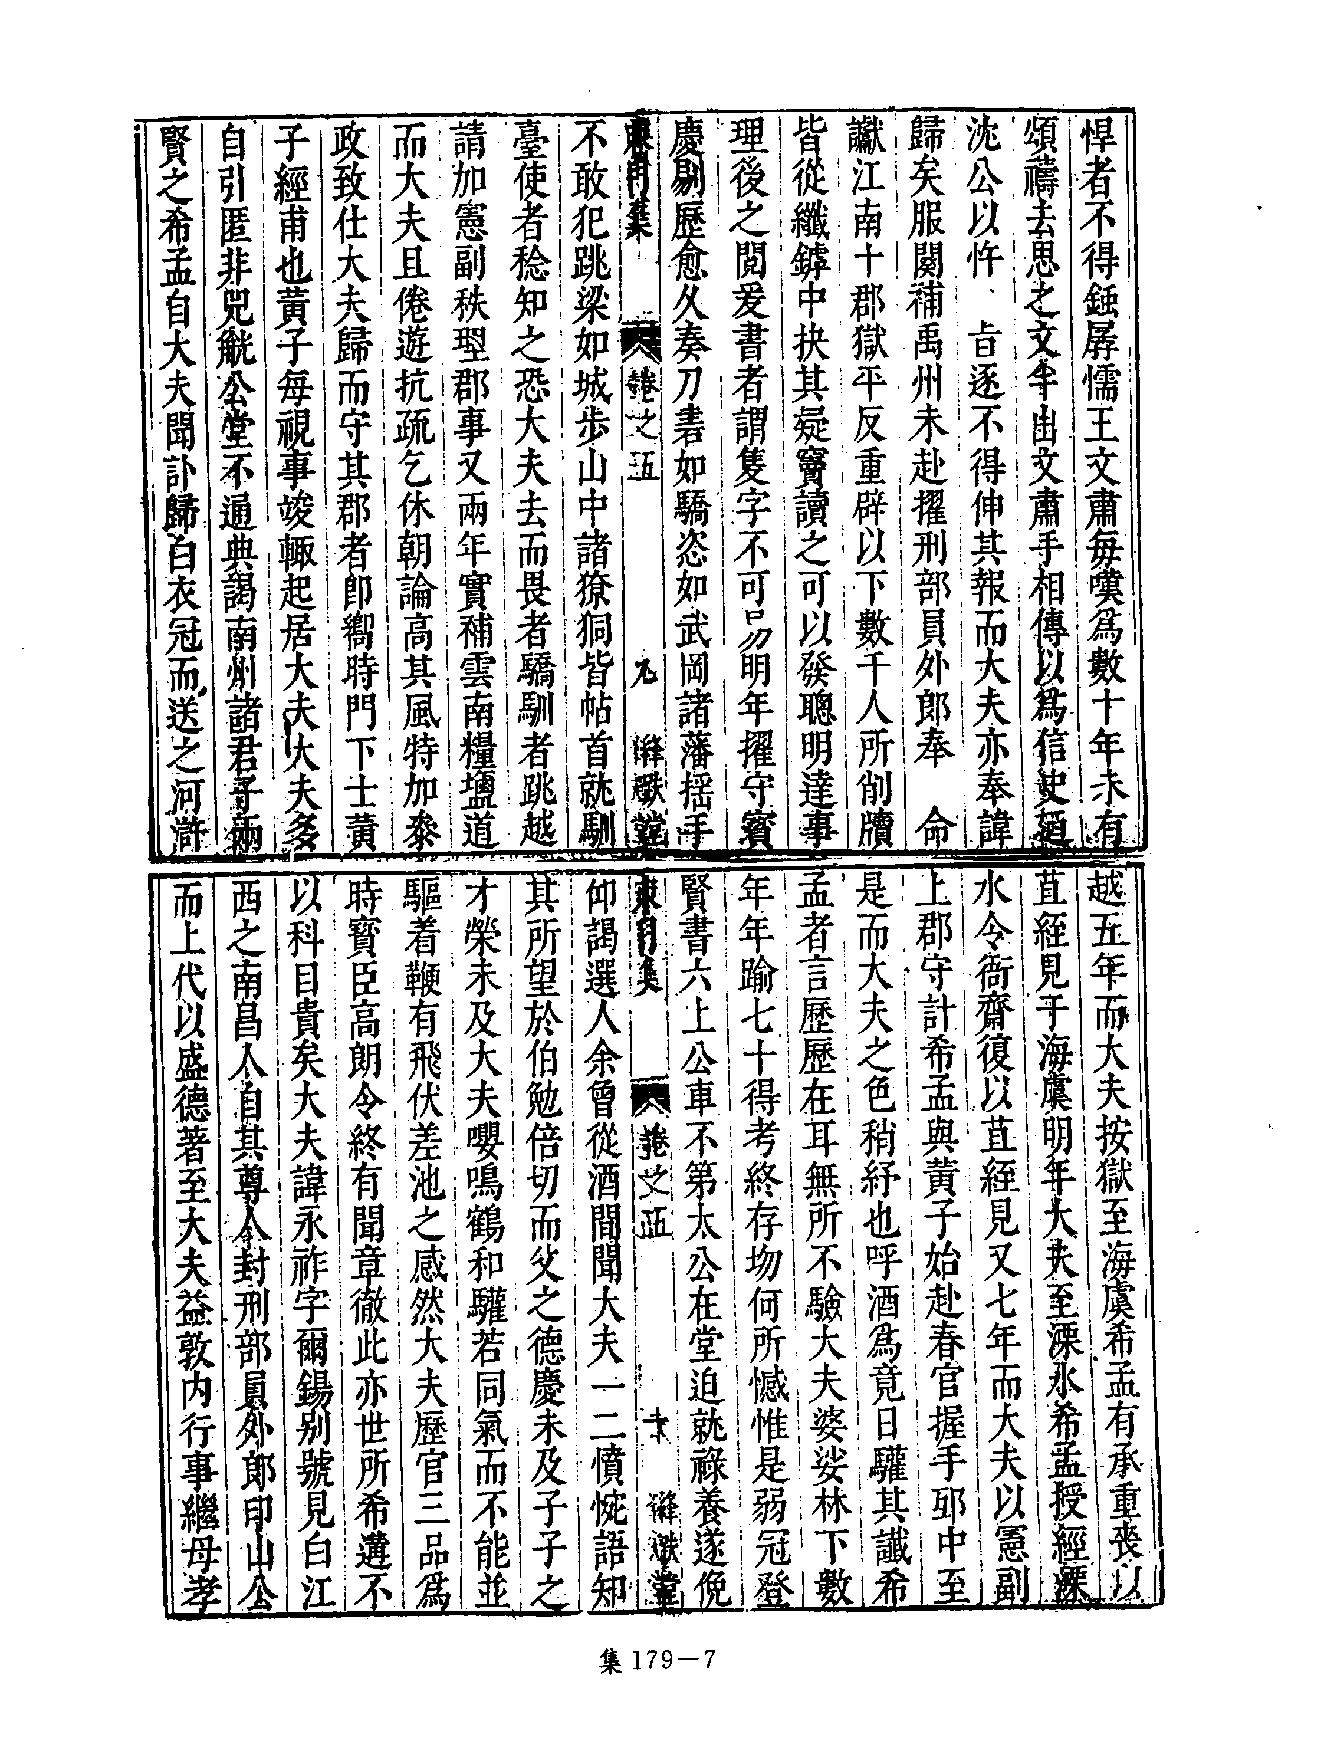 悍者不得鋋孱懦王文肅每嘆爲數十年未有
頌禱去思之文半出文肅手相傳以爲信史
沈公以忤 旨逐不得伸其報而大夫亦奉諱
歸矣服闋補禹州未赴擢刑部員外郎奉 命
讞江南十郡獄平反重辟以下數千人所削牘
皆從纖鏬中抉其疑竇讀之可以發聰明達事
理後之閲爰書者謂隻字不可易明年擢守寳
慶剔歷愈久奏刀砉如驕恣如武岡諸藩揺手
東 集 卷之五 九 堂
不敢犯跳梁如城步山中諸獠狪皆帖首就馴
臺使者稔知之恐大夫去而畏者驕馴者跳越
請加憲副秩理郡事又兩年實補雲南糧鹽道
而大夫且倦遊抗疏乞休朝論高其風特加叅
政致仕大夫歸而守其郡者卽嚮時門下士黄
子經甫也黄子每視事竣輙起居大夫大夫多
自引匿非兕觥公堂不通典謁南州諸君子兩
賢之希孟自大夫聞訃歸白衣冠而送之河滸
越五年而大夫按獄至海虞希孟有承重喪以
苴絰見于海虞明年大夫至溧水希孟授經溧
水令衙齋復以苴絰見又七年而大夫以憲副
上郡守計希孟與黄子始赴春官握手邸中至
是而大夫之色稍紓也呼酒爲竟日驩其讖希
孟者言歷歷在耳無所不驗大夫婆娑林下數
年年踰七十得考終存歾何所憾惟是弱冠登
賢書六上公車不第太公在堂迫就祿養遂俛
東 集 卷之五 十 堂
仰謁選人余曾從酒間聞大夫一二憤惋語知
其所望於伯勉倍切而父之德慶未及子子之
才榮未及大夫嚶鳴鶴和驩若同氣而不能並
驅着鞭有飛伏差池之感然大夫歷官三品爲
時寳臣高朗令終有聞章徹此亦世所希遘不
以科目貴矣大夫諱永祚字爾錫别號見白江
西之南昌人自其尊人封刑部員外郎印山公
而上代以盛德著至大夫益敦内行事繼母孝
集 179－7